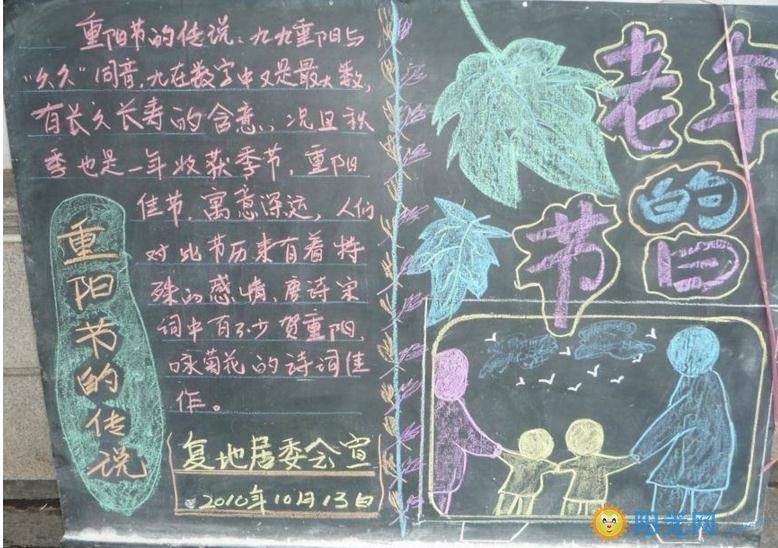 重阳节的传说：九九重阳与
“久久”同音，九在数字中又是最大数，
有长久长寿的含意，况且秋
季也是一年收获季节，重阳
佳节，寓意深远，人们
对此节历来有着特
殊的感情，唐诗宋
词中有不少贺重阳，
咏菊花的诗词佳
作。
重阳节的传说
复地居委会宣
2010年10月13日
老年
的
节日
阳光网